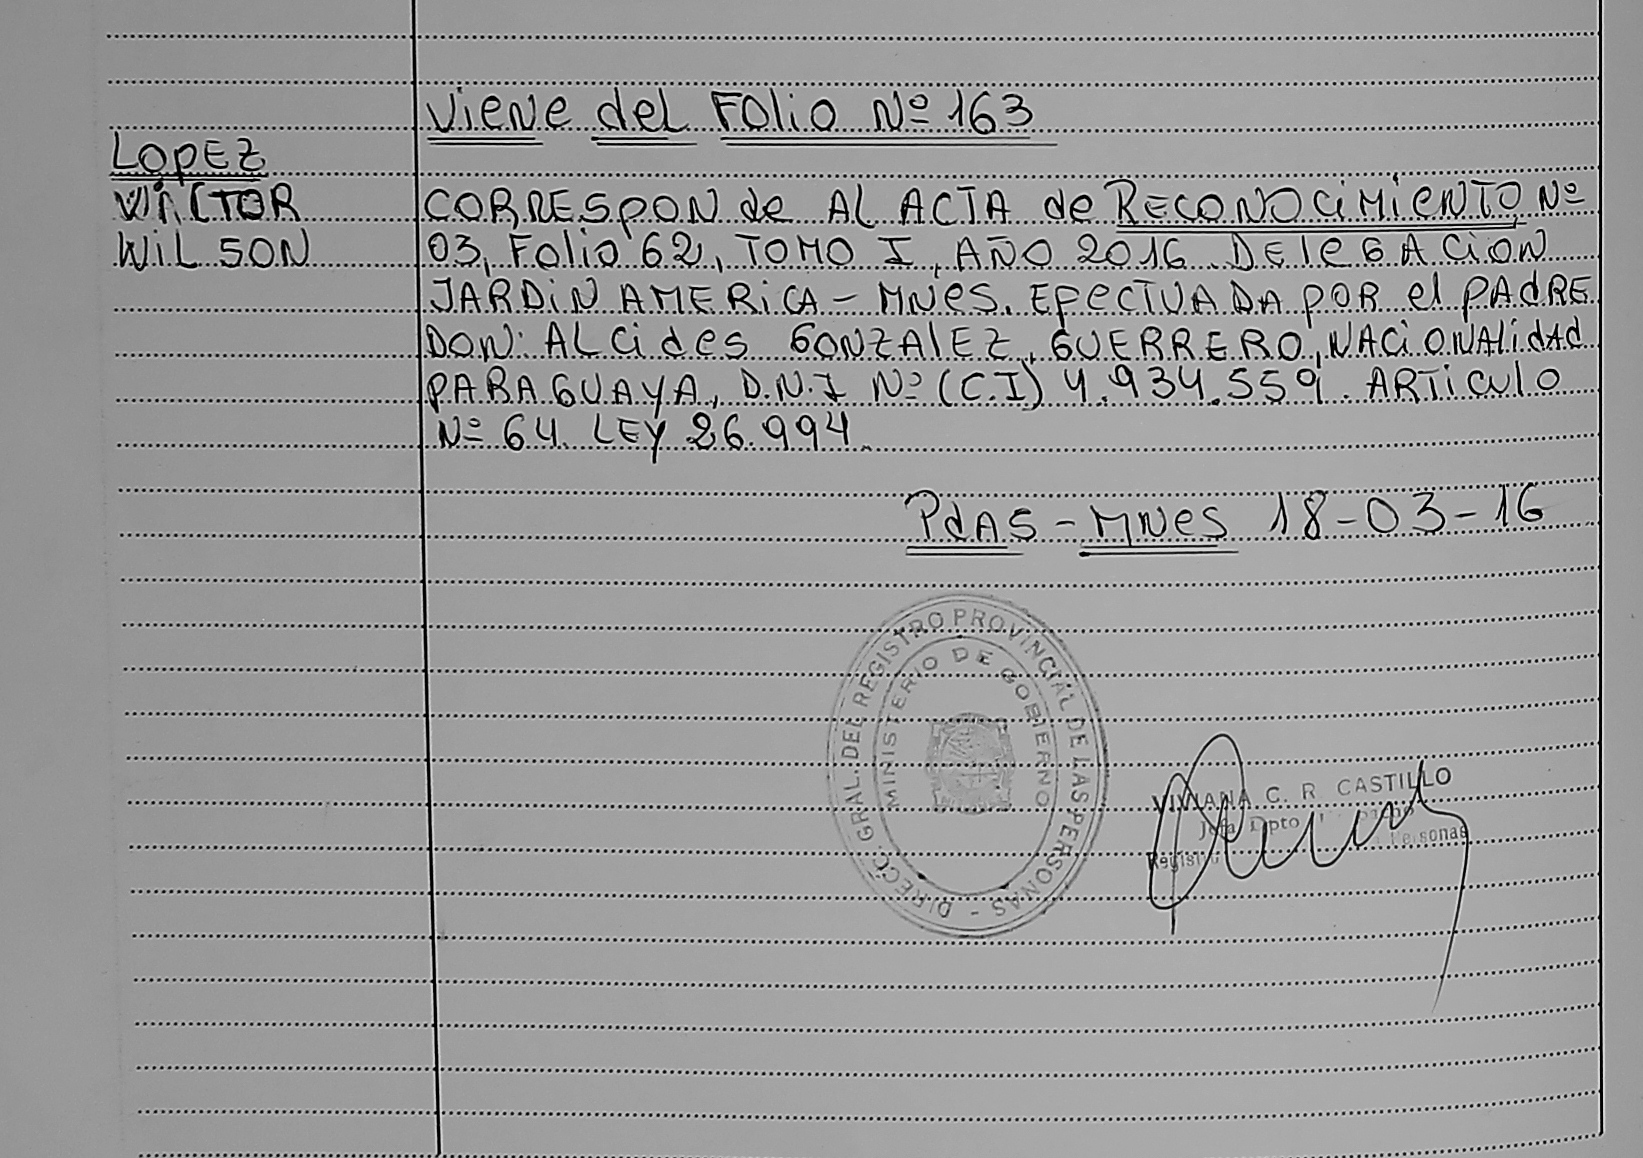 Viene del Folio Nº 163
LOPEZ
WICTOR
WILSON
CORRESPONde AL ACTA de RECONOCIMIENTO Nº
03, Folio 62, TOMO I, AÑO 2016. DELEGACION
JARDIN AMERICA - MNES. EFECTUADA POR el PADRE
DON: ALCIDES GONZALEZ, GUERRERO, NACIONALIDAD
PARAGUAYA, D.N.I Nº (C.I) 4.934.559. ARTICULO
Nº 64. LEY 26.994.
PdAS - MNES 18-03-16
DIREC. GRAL. DEL REGISTRO PROVINCIAL DE LAS PERSONAS -
MINISTERIO DE GOBIERNO
VIVIANA C. R. CASTILLO
Jefa Dpto
Personas